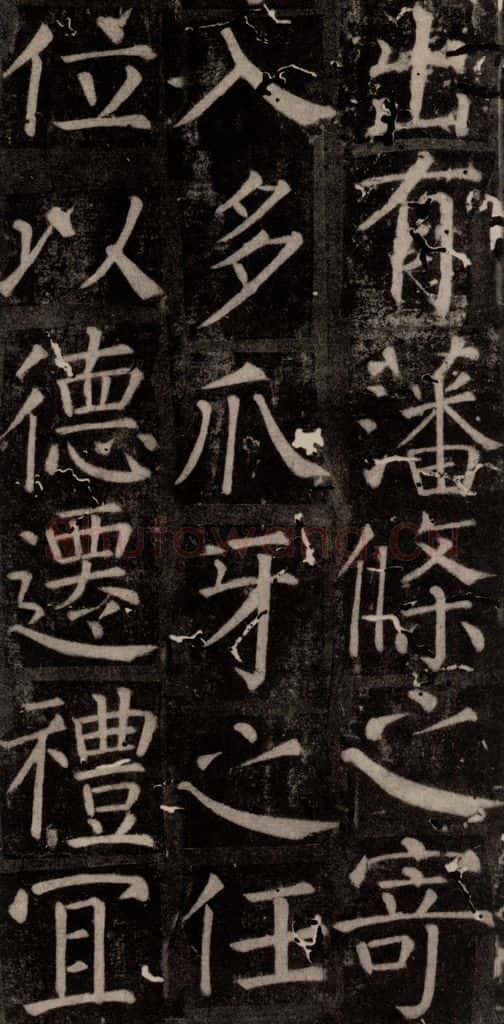 出有藩條之寄
入多爪牙之任
位以德遷禮冝
shufawang.cn